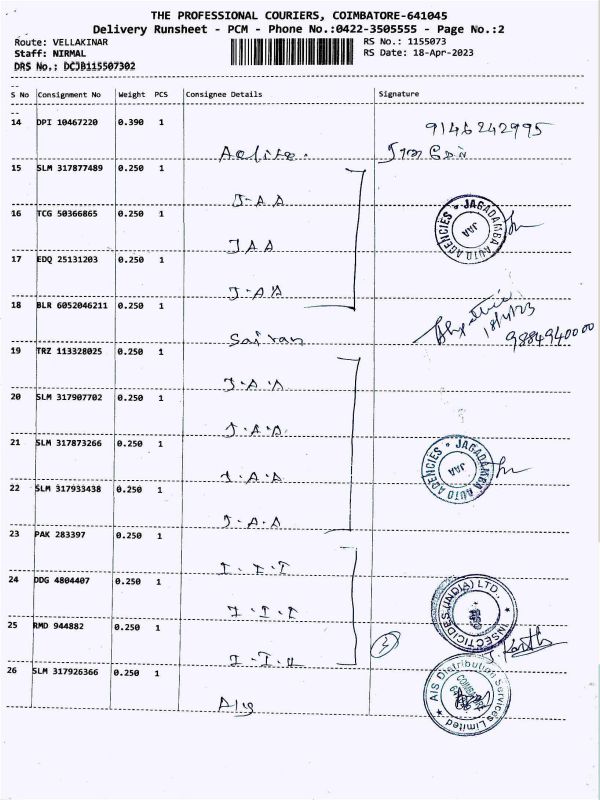 THE PROFESSIONAL COURIERS, COIMBATORE-641045
Delivery Runsheet - PCM - Phone No.:0422-3505555 - Page No.:2
Route: VELLAKINAR
RS No.: 1155073
Staff: NIRMAL
RS Date: 18-Apr-2023
DRS No.: DCJB115507302
S No Consignment No Weight PCS Consignee Details Signature
14 DPI 10467220 0.390 1
9146242995
15 SLM 317877489 0.250 1
J-A A
16 TCG 50366865 0.250 1
JAGADAMBA AUTO AGENCIES
JAA
J A A
17 EDQ 25131203 0.250 1
J-A A
18 BLR 6052046211 0.250 1
18/4/23
Sairan
9884940000
19 TRZ 113328025 0.250 1
J.A.A
20 SLM 317907702 0.250 1
J.A.A.
21 SLM 317873266 0.250 1
JAGADAMBA AUTO AGENCIES
JAA
J.A.A
22 SLM 317933438 0.250 1
J.A.A
23 PAK 283397 0.250 1
I.I.I
24 DDG 4804407 0.250 1
INSECTICIDES (INDIA) LTD.,
I.I.I
25 RMD 944882 0.250 1
3
I.I.I
26 SLM 317926366 0.250 1
AIS Distribution Services Limited